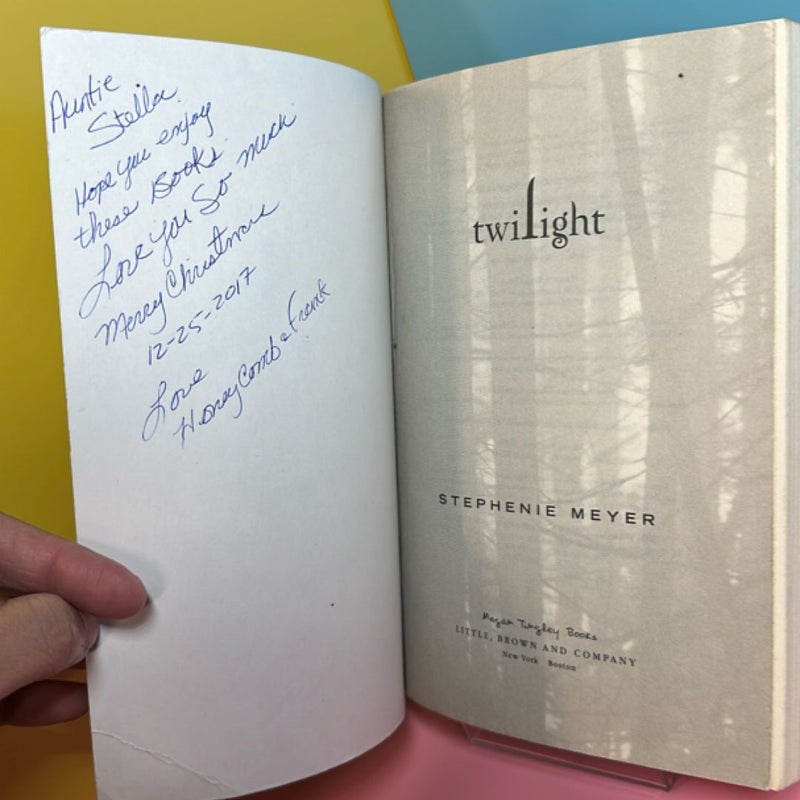 Auntie
Stella
Hope you enjoy
these Books.
Love you So much
Merry Christmas
12-25-2017
Love
HoneyComb & Frank
twilight
STEPHENIE MEYER
Megan Tingley Books
LITTLE, BROWN AND COMPANY
New York Boston